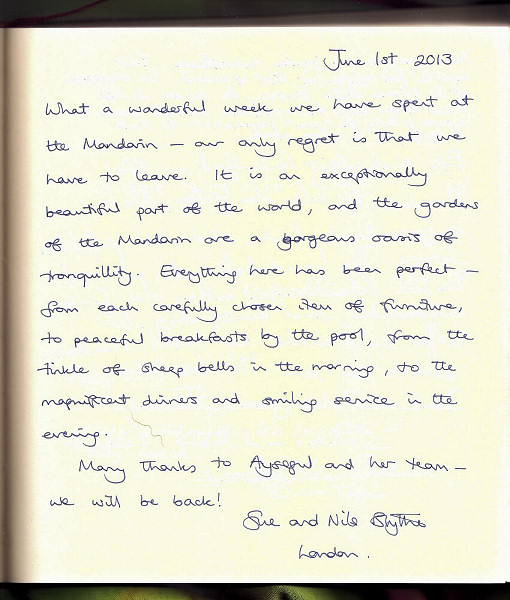 June 1st 2013
What a wonderful week we have spent at
the Mandarin – our only regret is that we
have to leave. It is an exceptionally
beautiful part of the world, and the gardens
of the Mandarin are a gorgeous oasis of
tranquillity. Everything here has been perfect –
from each carefully chosen item of furniture,
to peaceful breakfasts by the pool, from the
tinkle of sheep bells in the morning, to the
magnificent dinners and smiling service in the
evening.
Many thanks to Aysegul and her team –
we will be back!
Sue and Nils Blythe
London.